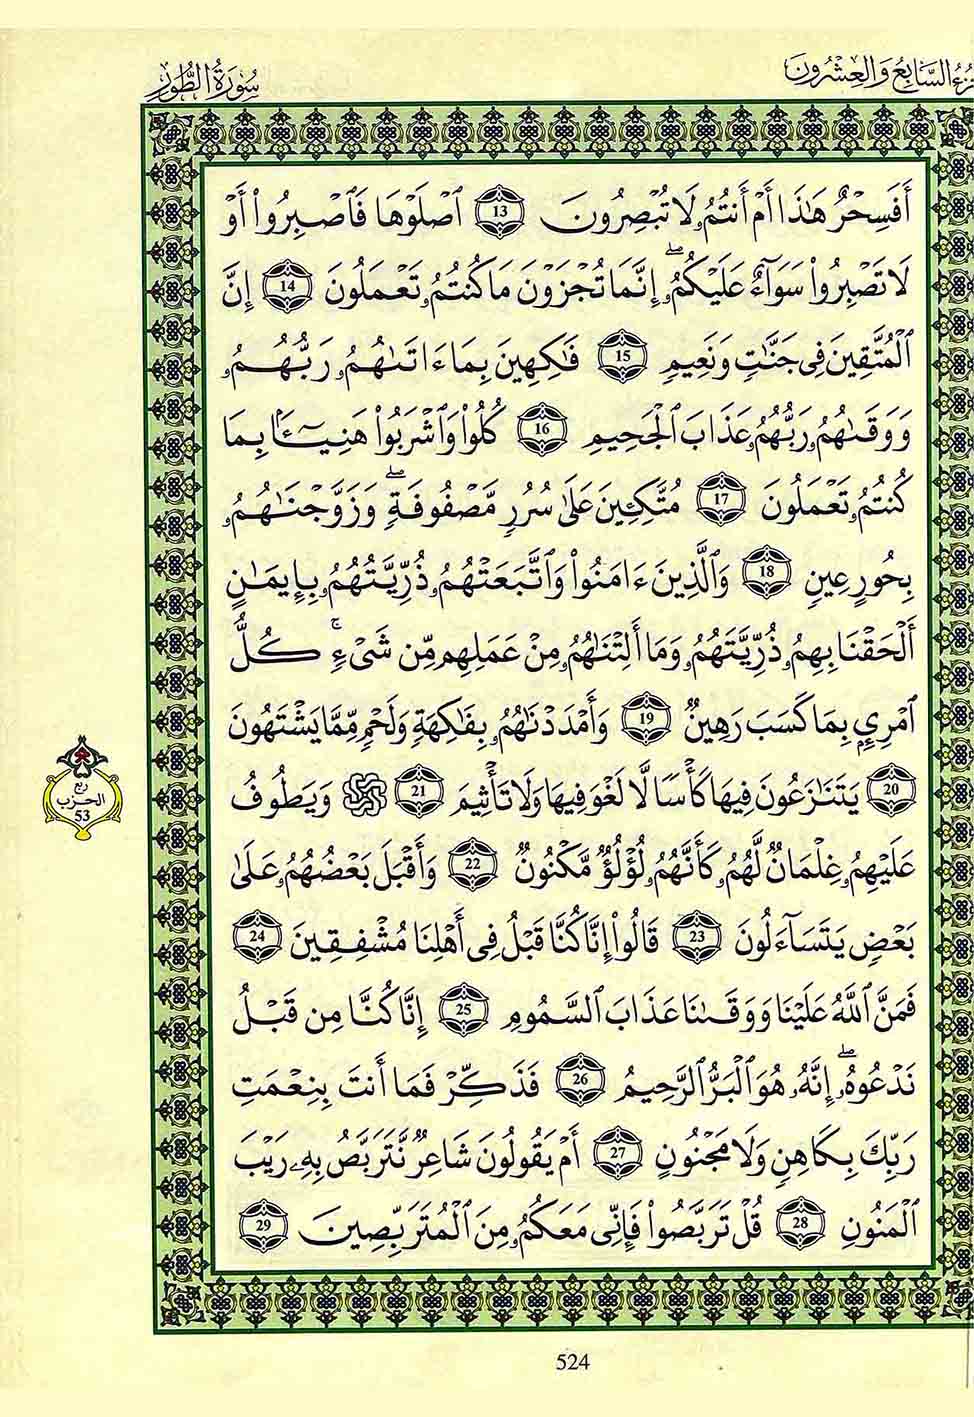 الجزء السابع والعشرون
سورة الطور
أَفَسِحْرٌ هَٰذَا أَمْ أَنتُمُۥ لَا تُبْصِرُونَ 13 ٱصْلَوْهَا فَٱصْبِرُوا۟ أَوْ
لَا تَصْبِرُوا۟ سَوَآءٌ عَلَيْكُمُۥٓ ۖ إِنَّمَا تُجْزَوْنَ مَا كُنتُمُۥ تَعْمَلُونَ 14 إِنَّ
ٱلْمُتَّقِينَ فِى جَنَّٰتٍ وَنَعِيمٍ 15 فَٰكِهِينَ بِمَا ءَاتَىٰهُمُۥ رَبُّهُمُۥ
وَوَقَىٰهُمُۥ رَبُّهُمُۥ عَذَابَ ٱلْجَحِيمِ 16 كُلُوا۟ وَٱشْرَبُوا۟ هَنِيٓـًٔۢا بِمَا
كُنتُمُۥ تَعْمَلُونَ 17 مُتَّكِـِٔينَ عَلَىٰ سُرُرٍ مَّصْفُوفَةٍ ۖ وَزَوَّجْنَٰهُمُۥ
بِحُورٍ عِينٍ 18 وَٱلَّذِينَ ءَامَنُوا۟ وَٱتَّبَعَتْهُمُۥ ذُرِّيَّتُهُمُۥ بِإِيمَٰنٍ
أَلْحَقْنَا بِهِمُۥ ذُرِّيَّتَهُمُۥ وَمَا أَلِتْنَٰهُمُۥ مِنْ عَمَلِهِمُۥ مِّن شَىْءٍ ۚ كُلُّ
ٱمْرِئٍۭ بِمَا كَسَبَ رَهِينٌ 19 وَأَمْدَدْنَٰهُمُۥ بِفَٰكِهَةٍ وَلَحْمٍ مِّمَّا يَشْتَهُونَ
20 يَتَنَٰزَعُونَ فِيهَا كَأْسًا لَّا لَغْوَ فِيهَا وَلَا تَأْثِيمَ 21 وَيَطُوفُ
عَلَيْهِمُۥ غِلْمَانٌ لَّهُمُۥ كَأَنَّهُمُۥ لُؤْلُؤٌ مَّكْنُونٌ 22 وَأَقْبَلَ بَعْضُهُمُۥ عَلَىٰ
بَعْضٍ يَتَسَآءَلُونَ 23 قَالُوا۟ إِنَّا كُنَّا قَبْلُ فِى أَهْلِنَا مُشْفِقِينَ 24
فَمَنَّ ٱللَّهُ عَلَيْنَا وَوَقَىٰنَا عَذَابَ ٱلسَّمُومِ 25 إِنَّا كُنَّا مِن قَبْلُ
نَدْعُوهُۥ ۖ إِنَّهُۥ هُوَ ٱلْبَرُّ ٱلرَّحِيمُ 26 فَذَكِّرْ فَمَا أَنتَ بِنِعْمَتِ
رَبِّكَ بِكَاهِنٍ وَلَا مَجْنُونٍ 27 أَمْ يَقُولُونَ شَاعِرٌ نَّتَرَبَّصُ بِهِۦ رَيْبَ
ٱلْمَنُونِ 28 قُلْ تَرَبَّصُوا۟ فَإِنِّى مَعَكُمُۥ مِنَ ٱلْمُتَرَبِّصِينَ 29
ربع
الحزب
53
524